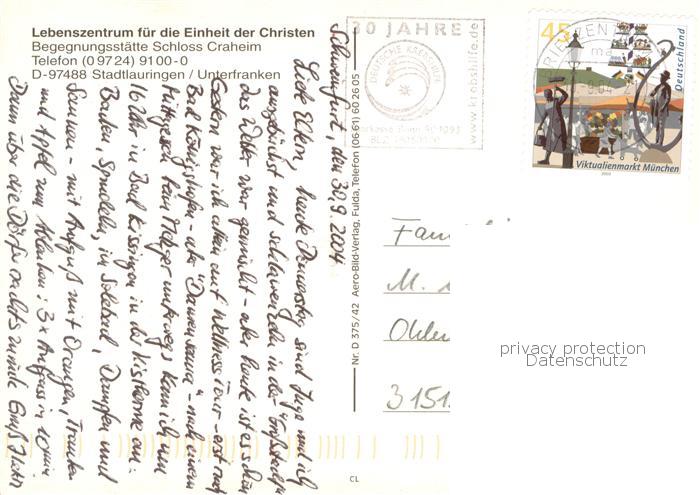 Lebenszentrum für die Einheit der Christen
Begegnungsstätte Schloss Craheim
Telefon (0 97 24) 91 00 - 0
D-97488 Stadtlauringen / Unterfranken
Schweinfurt, den 30.9.2004
Liebe Eltern, heute Donnerstag sind Inge und ich
ausgebüxt und schlawenzeln in der Fußgängerz
das Wetter war gemischt - aber heute ist es schön
Gestern war ich allein auf Wellness Tour - erst nach
Bad Königshofen - aber "Damensauna" - nach einem
Mittagessen beim Metzger unterwegs kam ich um
16 Uhr in Bad Kissingen in der KissTherme an:
Baden, Sprudeln, im Solebad, Dampfen und
Saunen - mit Aufguß mit Orangen, Trauben
und Apfel zum 3 x Aufguss in 10 min
Dann über die Dörfer nachts zurück Gruß
Nr. D 375/42 Aero-Bild-Verlag, Fulda, Telefon (06 61) 60 26 05
CL
30 JAHRE
DEUTSCHE KREBSHILFE
www.krebshilfe.de
Sparkasse Bonn 90 1093
BRIEFZENT
45
Deutschland
Viktualienmarkt München
2003
Fam
M.
Ohle
3151
privacy protection
Datenschutz